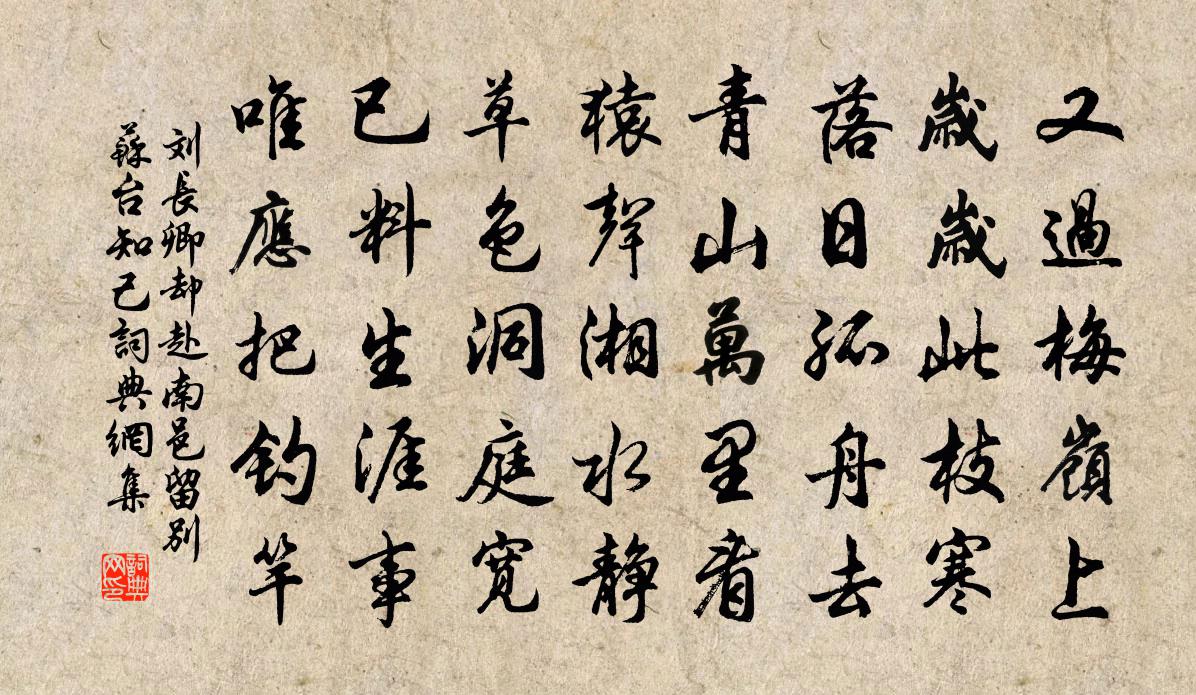 又過梅嶺上
歲歲此枝寒
落日孤舟去
青山萬里看
猿聲湘水靜
草色洞庭寬
已料生涯事
唯應把钓竿
刘長卿却赴南邑留别
蘇台知己詞典網集
詞典
网印